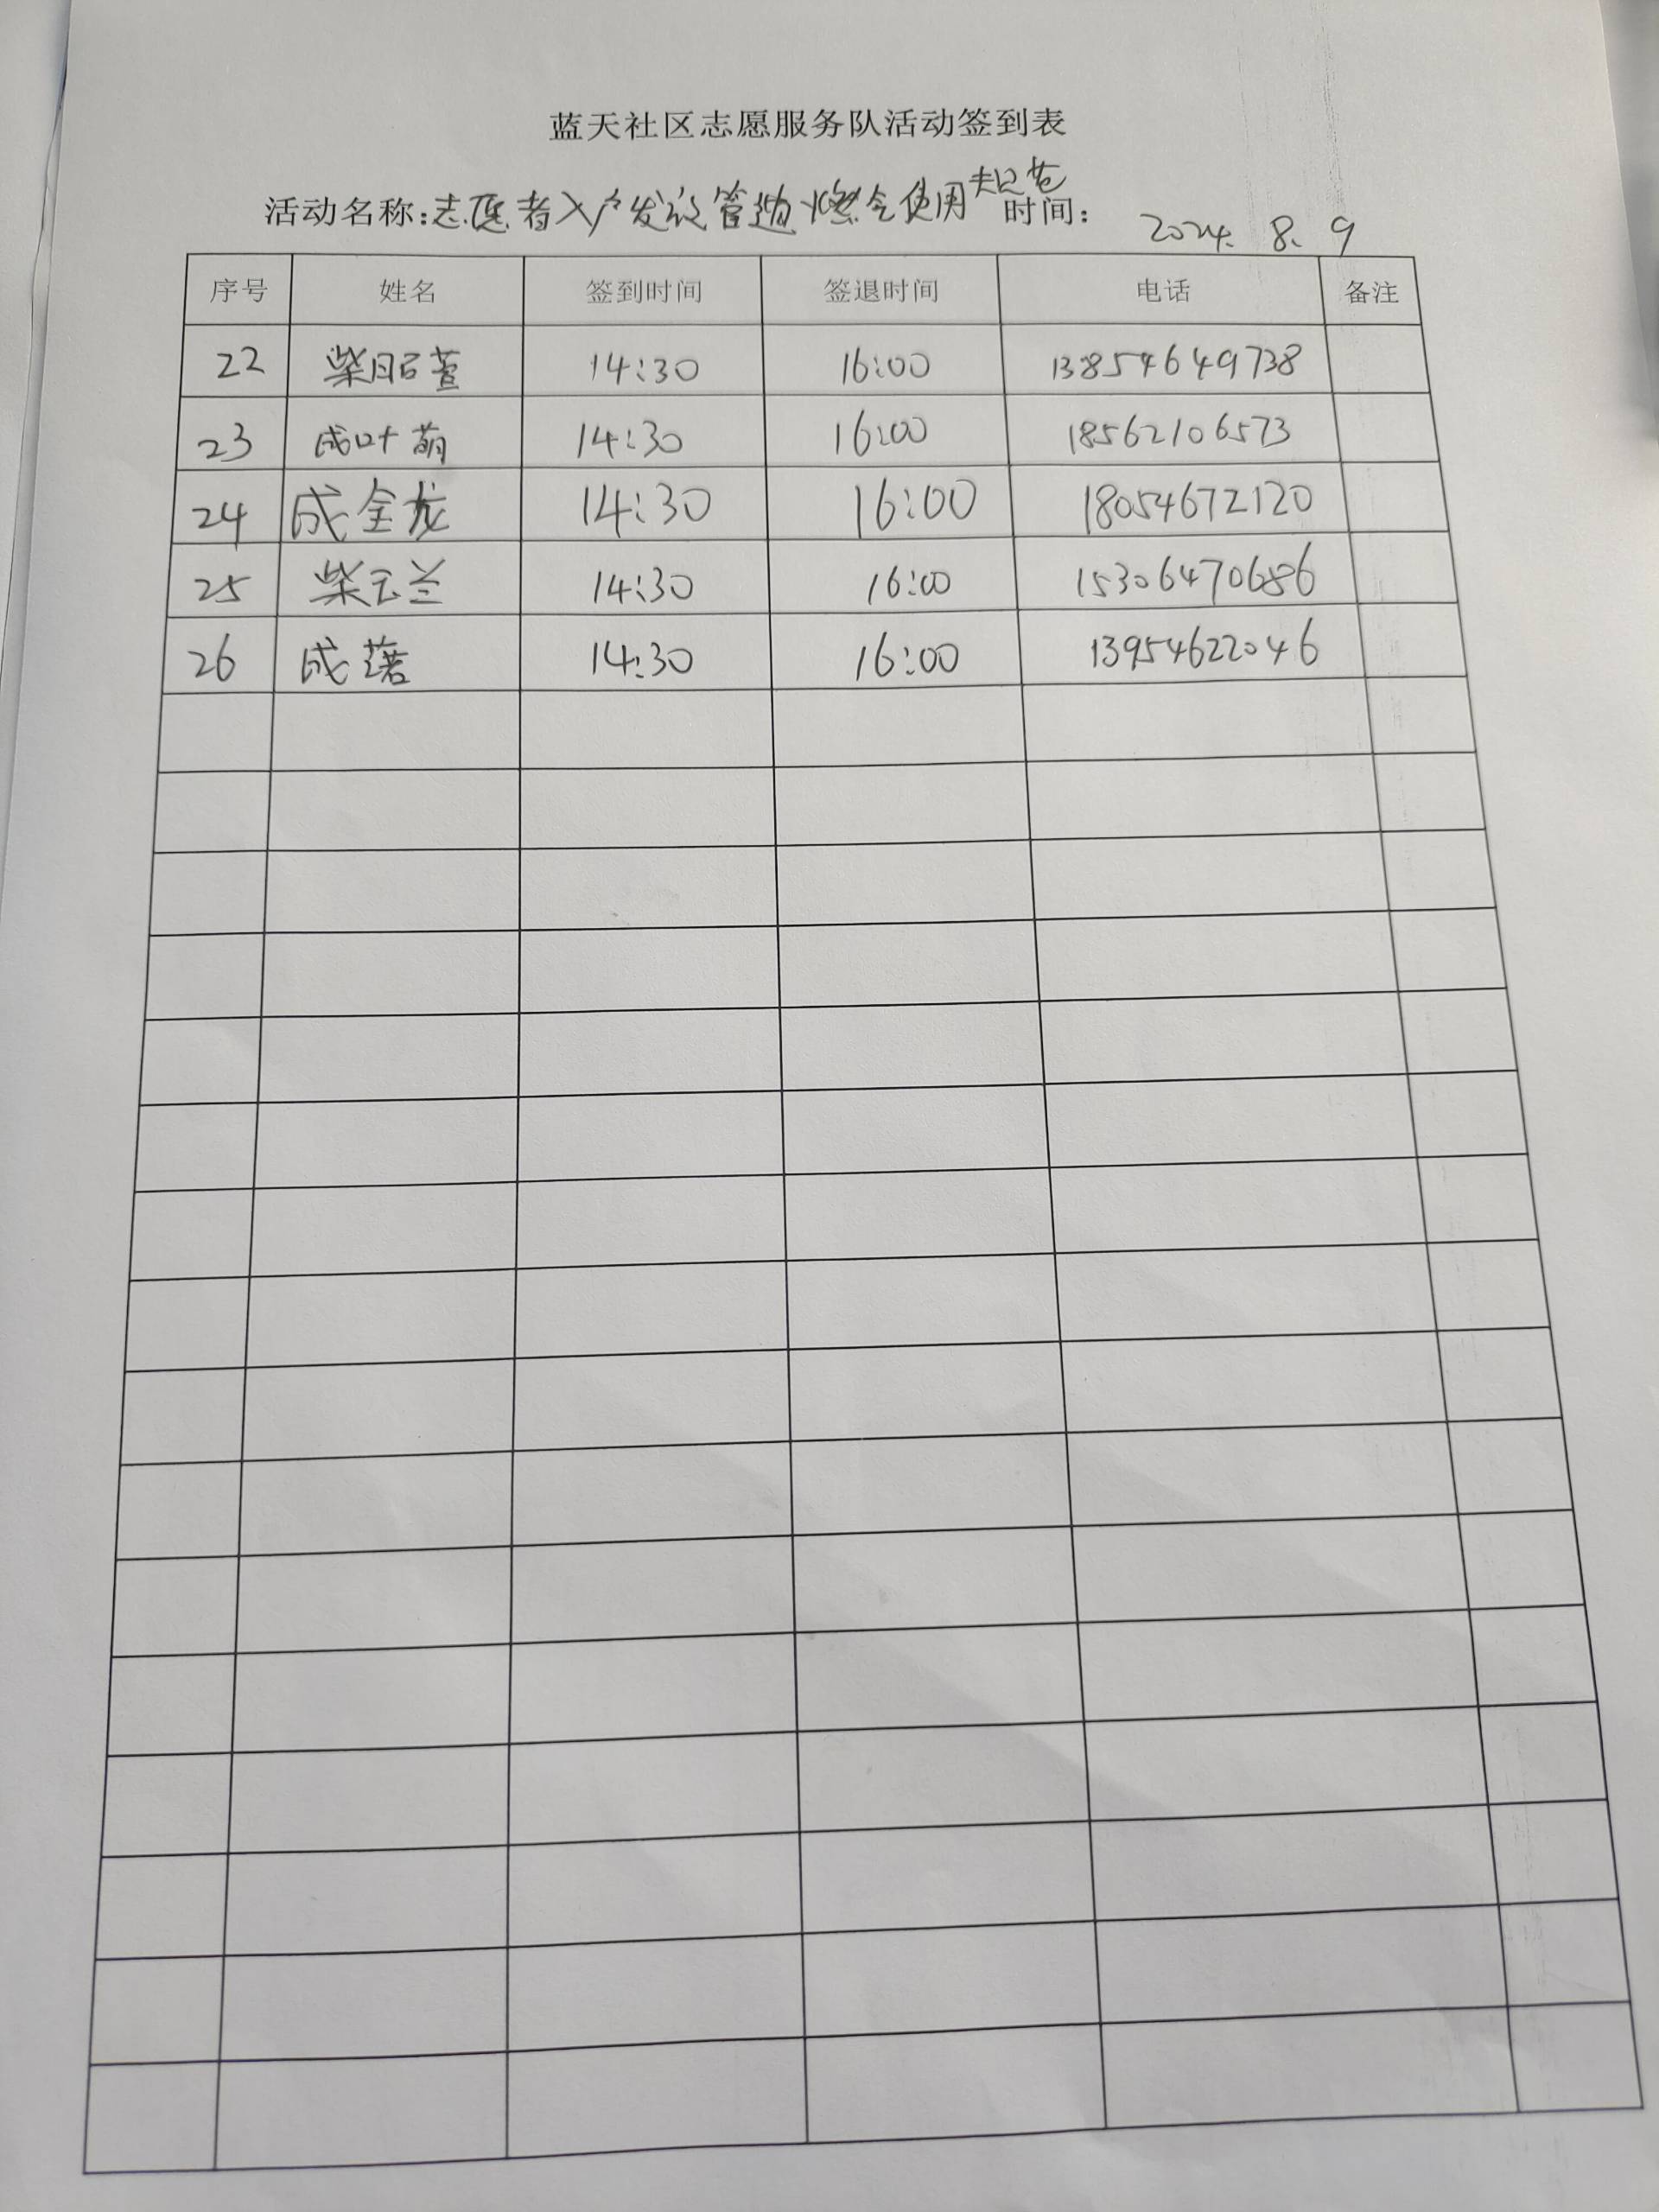 蓝天社区志愿服务队活动签到表
活动名称:志愿者入户发放管道燃气使用规范 时间: 2024. 8. 9
序号 姓名 签到时间 签退时间 电话 备注
22 柴昭萱 14:30 16:00 13854649738
23 成叶萌 14:30 16:00 18562106573
24 成金龙 14:30 16:00 18054672120
25 柴云兰 14:30 16:00 15306470686
26 成 14:30 16:00 13954622046